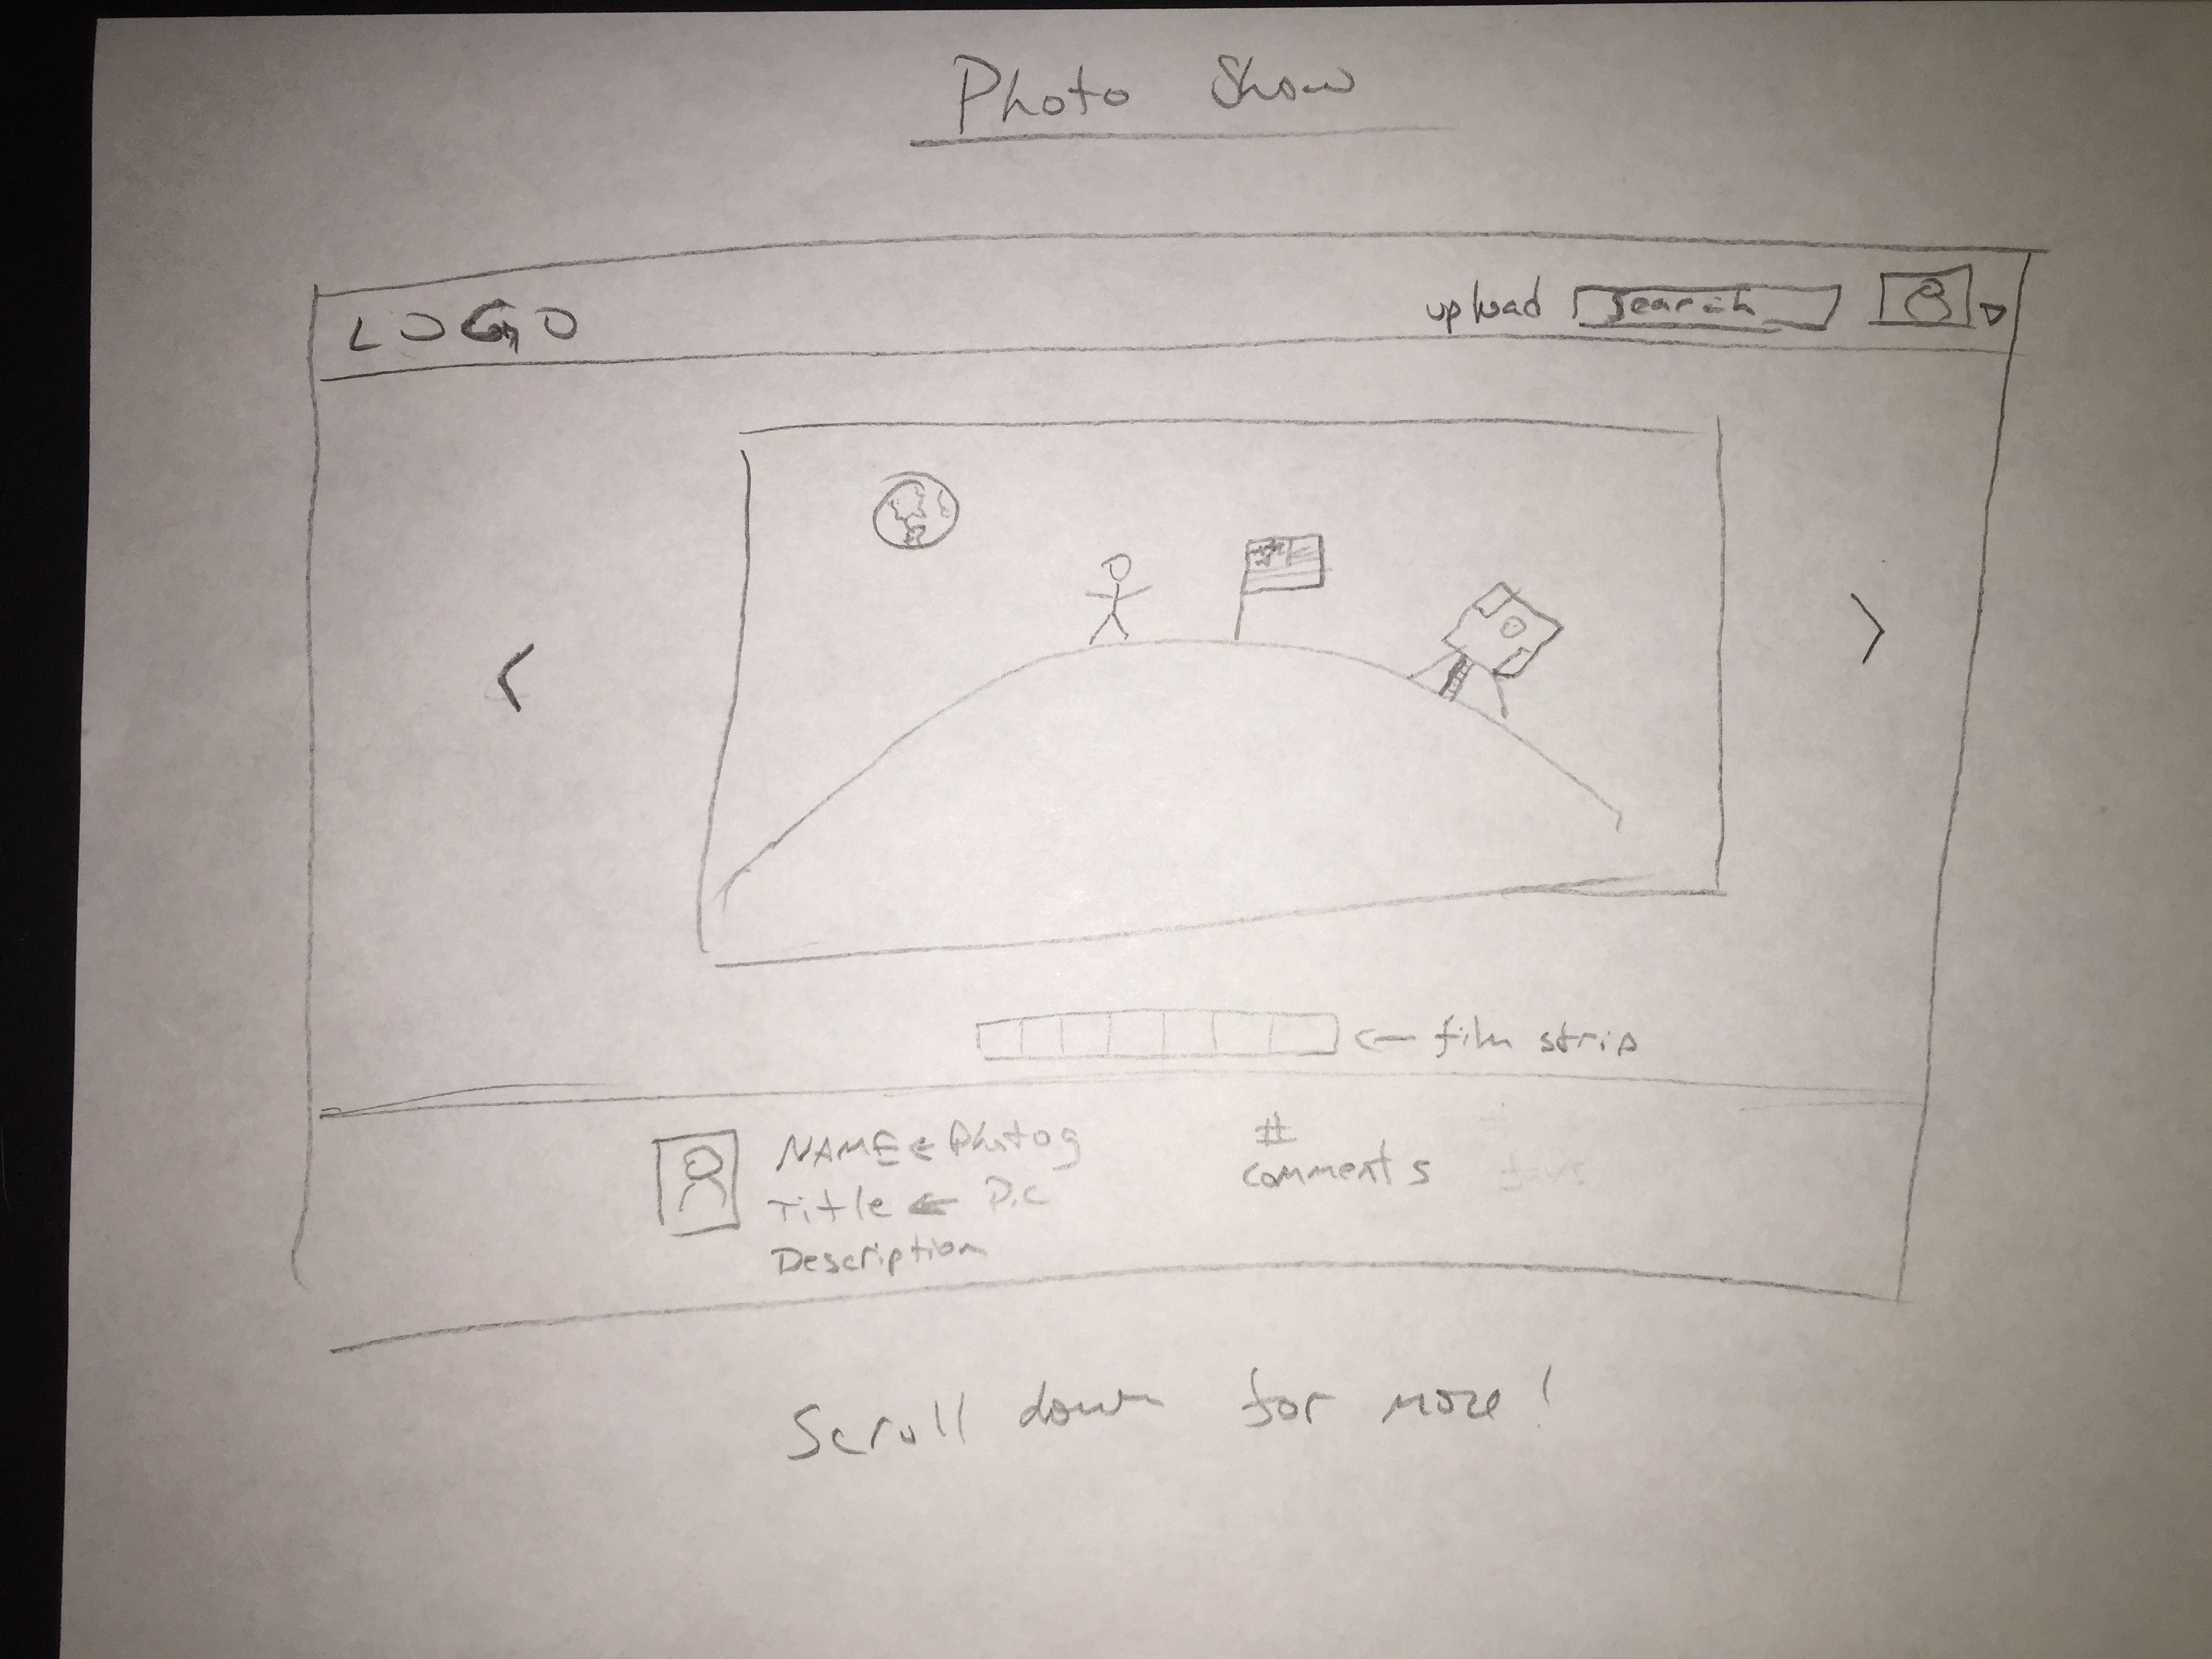 Photo Show
LOGO upload search
<
>
<— film strip
NAME ← Photog
Title ← Pic
Description
#
comments
Scroll down for more!